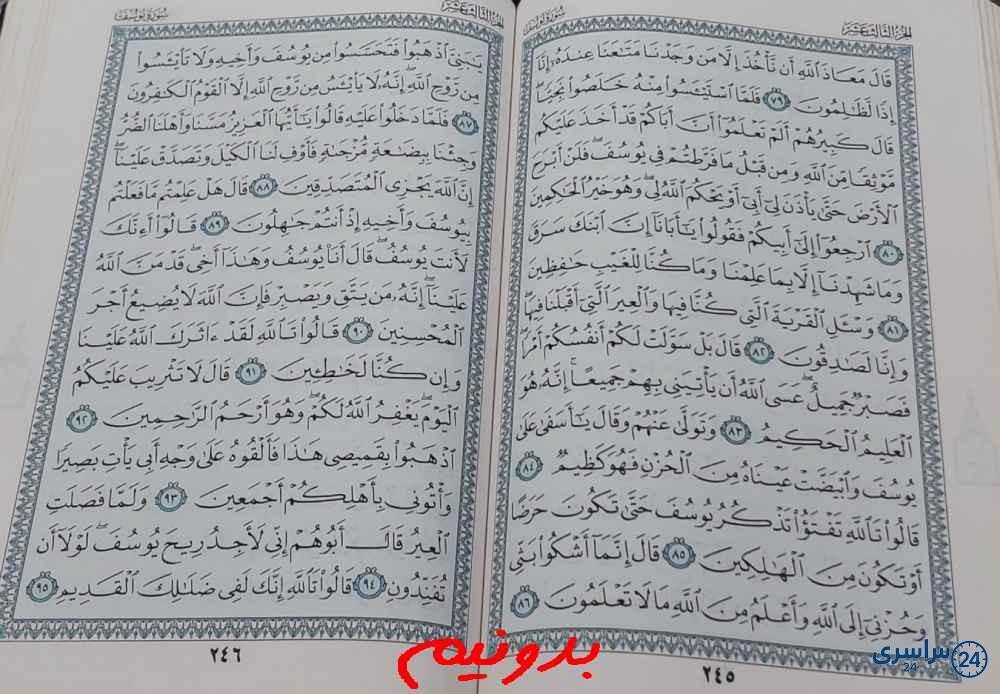 الجزء الثالث عشر
سورة يوسف
قَالَ مَعَاذَ ٱللَّهِ أَن نَّأْخُذَ إِلَّا مَن وَجَدْنَا مَتَٰعَنَا عِندَهُۥٓ إِنَّآ
إِذًا لَّظَٰلِمُونَ ٧٩ فَلَمَّا ٱسْتَيْـَٔسُوا۟ مِنْهُ خَلَصُوا۟ نَجِيًّا ۖ
قَالَ كَبِيرُهُمْ أَلَمْ تَعْلَمُوٓا۟ أَنَّ أَبَاكُمْ قَدْ أَخَذَ عَلَيْكُم
مَّوْثِقًا مِّنَ ٱللَّهِ وَمِن قَبْلُ مَا فَرَّطتُمْ فِى يُوسُفَ ۖ فَلَنْ أَبْرَحَ
ٱلْأَرْضَ حَتَّىٰ يَأْذَنَ لِىٓ أَبِىٓ أَوْ يَحْكُمَ ٱللَّهُ لِى ۖ وَهُوَ خَيْرُ ٱلْحَٰكِمِينَ
٨٠ ٱرْجِعُوٓا۟ إِلَىٰٓ أَبِيكُمْ فَقُولُوا۟ يَٰٓأَبَانَآ إِنَّ ٱبْنَكَ سَرَقَ
وَمَا شَهِدْنَآ إِلَّا بِمَا عَلِمْنَا وَمَا كُنَّا لِلْغَيْبِ حَٰفِظِينَ
٨١ وَسْـَٔلِ ٱلْقَرْيَةَ ٱلَّتِى كُنَّا فِيهَا وَٱلْعِيرَ ٱلَّتِىٓ أَقْبَلْنَا فِيهَا ۖ
وَإِنَّا لَصَٰدِقُونَ ٨٢ قَالَ بَلْ سَوَّلَتْ لَكُمْ أَنفُسُكُمْ أَمْرًا ۖ
فَصَبْرٌ جَمِيلٌ ۖ عَسَى ٱللَّهُ أَن يَأْتِيَنِى بِهِمْ جَمِيعًا ۚ إِنَّهُۥ هُوَ
ٱلْعَلِيمُ ٱلْحَكِيمُ ٨٣ وَتَوَلَّىٰ عَنْهُمْ وَقَالَ يَٰٓأَسَفَىٰ عَلَىٰ
يُوسُفَ وَٱبْيَضَّتْ عَيْنَاهُ مِنَ ٱلْحُزْنِ فَهُوَ كَظِيمٌ ٨٤
قَالُوا۟ تَٱللَّهِ تَفْتَؤُا۟ تَذْكُرُ يُوسُفَ حَتَّىٰ تَكُونَ حَرَضًا
أَوْ تَكُونَ مِنَ ٱلْهَٰلِكِينَ ٨٥ قَالَ إِنَّمَآ أَشْكُوا۟ بَثِّى
وَحُزْنِىٓ إِلَى ٱللَّهِ وَأَعْلَمُ مِنَ ٱللَّهِ مَا لَا تَعْلَمُونَ ٨٦
٢٤٥
الجزء الثالث عشر
سورة يوسف
يَٰبَنِىَّ ٱذْهَبُوا۟ فَتَحَسَّسُوا۟ مِن يُوسُفَ وَأَخِيهِ وَلَا تَا۟يْـَٔسُوا۟
مِن رَّوْحِ ٱللَّهِ ۖ إِنَّهُۥ لَا يَا۟يْـَٔسُ مِن رَّوْحِ ٱللَّهِ إِلَّا ٱلْقَوْمُ ٱلْكَٰفِرُونَ
٨٧ فَلَمَّا دَخَلُوا۟ عَلَيْهِ قَالُوا۟ يَٰٓأَيُّهَا ٱلْعَزِيزُ مَسَّنَا وَأَهْلَنَا ٱلضُّرُّ
وَجِئْنَا بِبِضَٰعَةٍ مُّزْجَىٰةٍ فَأَوْفِ لَنَا ٱلْكَيْلَ وَتَصَدَّقْ عَلَيْنَآ ۖ
إِنَّ ٱللَّهَ يَجْزِى ٱلْمُتَصَدِّقِينَ ٨٨ قَالَ هَلْ عَلِمْتُم مَّا فَعَلْتُم
بِيُوسُفَ وَأَخِيهِ إِذْ أَنتُمْ جَٰهِلُونَ ٨٩ قَالُوٓا۟ أَءِنَّكَ
لَأَنتَ يُوسُفُ ۖ قَالَ أَنَا۠ يُوسُفُ وَهَٰذَآ أَخِى ۖ قَدْ مَنَّ ٱللَّهُ
عَلَيْنَآ ۖ إِنَّهُۥ مَن يَتَّقِ وَيَصْبِرْ فَإِنَّ ٱللَّهَ لَا يُضِيعُ أَجْرَ
ٱلْمُحْسِنِينَ ٩٠ قَالُوا۟ تَٱللَّهِ لَقَدْ ءَاثَرَكَ ٱللَّهُ عَلَيْنَا
وَإِن كُنَّا لَخَٰطِـِٔينَ ٩١ قَالَ لَا تَثْرِيبَ عَلَيْكُمُ
ٱلْيَوْمَ ۖ يَغْفِرُ ٱللَّهُ لَكُمْ ۖ وَهُوَ أَرْحَمُ ٱلرَّٰحِمِينَ ٩٢
ٱذْهَبُوا۟ بِقَمِيصِى هَٰذَا فَأَلْقُوهُ عَلَىٰ وَجْهِ أَبِى يَأْتِ بَصِيرًا
وَأْتُونِى بِأَهْلِكُمْ أَجْمَعِينَ ٩٣ وَلَمَّا فَصَلَتِ
ٱلْعِيرُ قَالَ أَبُوهُمْ إِنِّى لَأَجِدُ رِيحَ يُوسُفَ ۖ لَوْلَآ أَن
تُفَنِّدُونِ ٩٤ قَالُوا۟ تَٱللَّهِ إِنَّكَ لَفِى ضَلَٰلِكَ ٱلْقَدِيمِ ٩٥
٢٤٦
بدونیم
سراسری 24
24